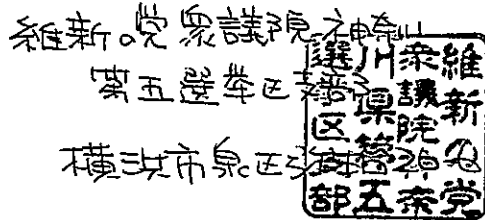 維新の党衆議院神奈川
第五選挙区支部
横浜市泉区
維新の党
衆議院神奈
川県第五
選挙区支部